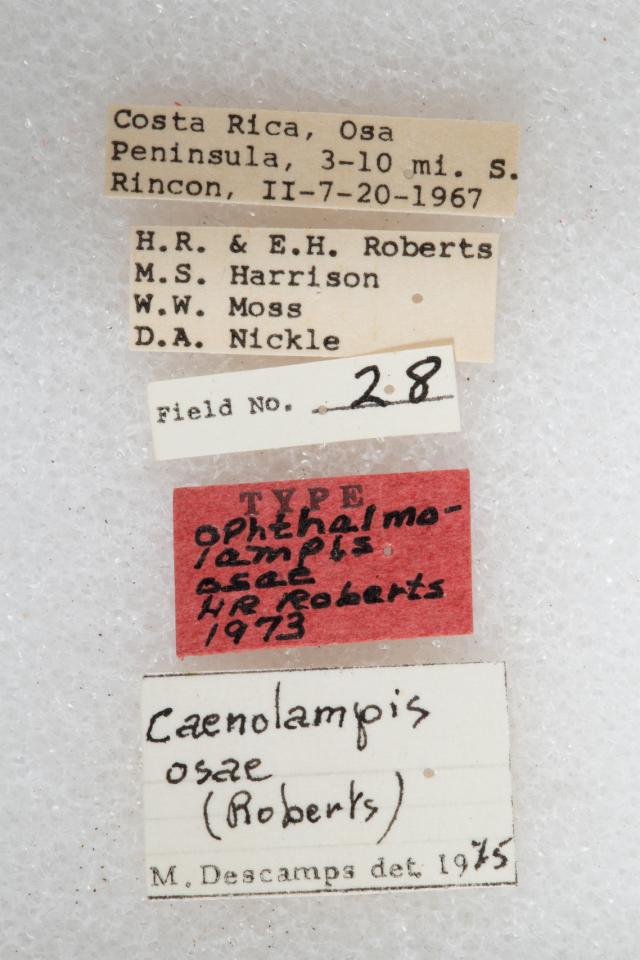 Costa Rica, Osa
Peninsula, 3-10 mi. S.
Rincon, II-7-20-1967
H.R. & E.H. Roberts
M.S. Harrison
W.W. Moss
D.A. Nickle
Field No. 28
TYPE
Ophthalmo-
lampis
osae
HR Roberts
1973
Caenolampis
osae
(Roberts)
M. Descamps det. 1975